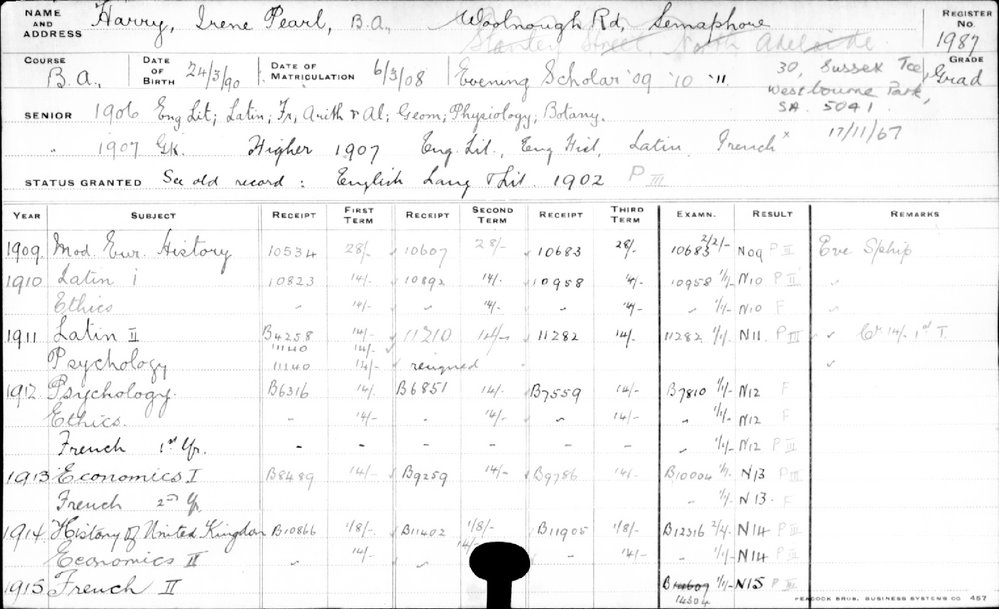 NAME AND ADDRESS Harry, Irene Pearl, B.A., Woolnough Rd, Semaphore REGISTER No.
Stanley Street, North Adelaide 1987
COURSE B.A., DATE OF BIRTH 24/3/90 DATE OF MATRICULATION 6/3/08 Evening Scholar '09 '10 '11 30, Sussex Tce, GRADE Grad
Westbourne Park,
SA. 5041
SENIOR 1906 Eng Lit; Latin; Fr; Arith & Al; Geom; Physiology; Botany.
17/11/67
" 1907 Gk. Higher 1907 Eng. Lit., Eng Hist, Latin, French x
STATUS GRANTED See old record : English Lang & Lit. 1902 P III
YEAR SUBJECT RECEIPT FIRST TERM RECEIPT SECOND TERM RECEIPT THIRD TERM EXAMN. RESULT REMARKS
1909 Mod. Eur. History 10534 28/- 10607 28/- 10683 28/- 10683 2/2/- N09 P II Eve S/ship
1910 Latin i 10823 14/- 10892 14/- 10958 14/- 10958 1/1/- N10 P II
Ethics 14/- 14/- 14/- 1/1/- N10 F
1911 Latin II B4258 14/- 11210 14/- 11282 14/- 11282 1/1/- N11 P III Cr 14/- 1st T.
11140 14/-
Psychology 11140 14/- resigned
1912 Psychology B6316 14/- B6851 14/- B7559 14/- B7810 1/1/- N12 F
Ethics. - 14/- 14/- 14/- 1/1/- N12 F
French 1st Yr. - - - - - - 1/1/- N12 P III
1913 Economics I B8489 14/- B9259 14/- B9786 14/- B10004 1/1/- N13 P III
French 2nd Yr - 1/1/- N13 F
1914 History of United Kingdom B10866 1/8/- B11402 1/8/- B11905 1/8/- B12316 2/4/- N14 P II
Economics II 14/- 14/- 14/- 1/1/- N14 P II
1915 French II 1/1/- N15 P III
14504
PEACOCK BROS. BUSINESS SYSTEMS CO 457